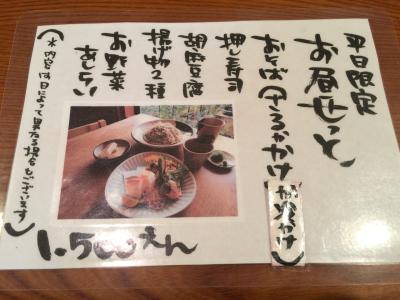 平日限定
お昼せっと
おそば（ざるかかけ）
押し寿司
胡麻豆腐
揚げ物2種
お野菜
あしらい
（＊内容は日によって異なる場合もございます）
1.500えん